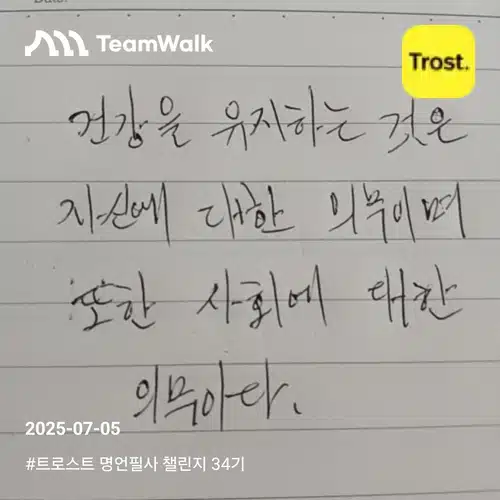 Date.
TeamWalk
Trost.
건강을 유지하는 것은
자신에 대한 의무이며
또한 사회에 대한
의무이다.
2025-07-05
#트로스트 명언필사 챌린지 34기